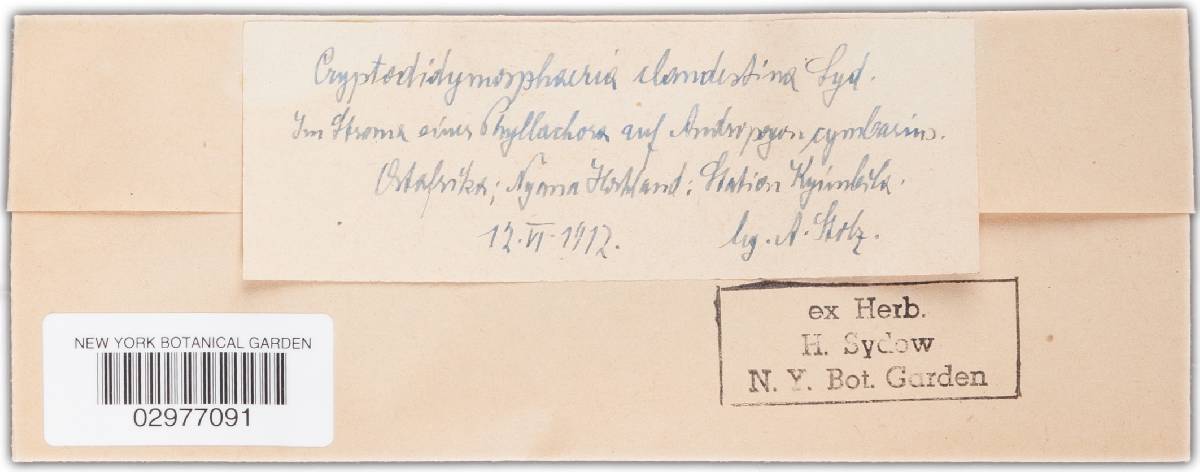 Cryptodidymosphaeria clandestina Syd.
Im Stroma einer Phyllachora auf Andropogon cymbarius.
Ostafrika; Nyassa Hochland: Station Kyimbila.
12. VI. 1912. leg. A. Stolz.
ex Herb.
H. Sydow
N. Y. Bot. Garden
NEW YORK BOTANICAL GARDEN
02977091